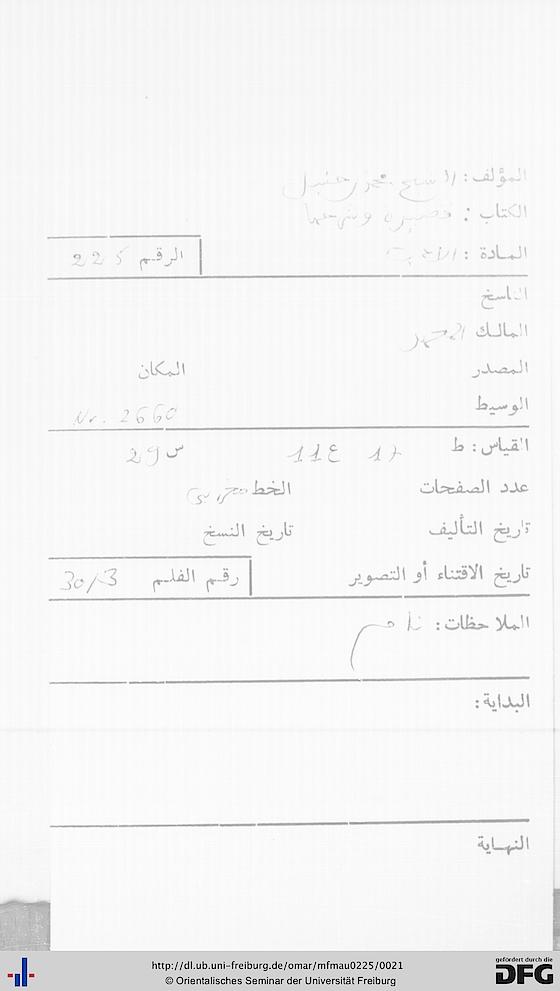 المؤلف: الشيخ محمد
الكتاب: قصيدة وشرحها
المادة: الأدب
الرقم 225
الناسخ
المالك
المصدر المكان
الوسيط Nr. 2660
القياس: ط 17 ع 11 س 29
عدد الصفحات الخط مغربي
تاريخ التأليف تاريخ النسخ
تاريخ الاقتناء أو التصوير رقم الفلم 30/3
الملاحظات: تام
البداية:
النهاية
http://dl.ub.uni-freiburg.de/omar/mfmau0225/0021
© Orientalisches Seminar der Universität Freiburg
gefördert durch die
DFG